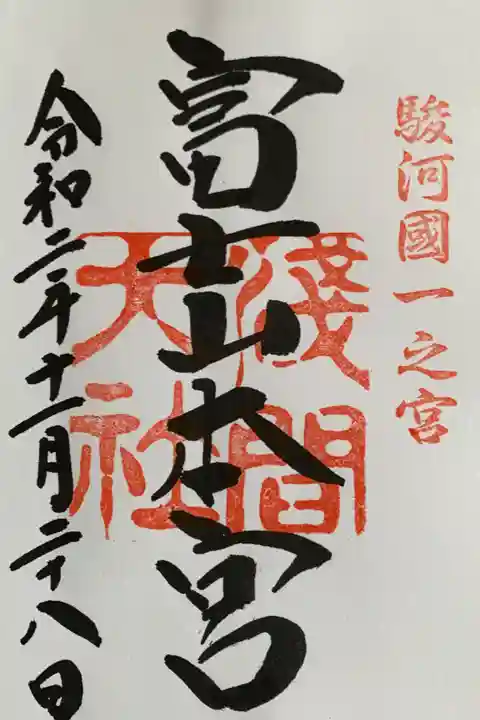 駿河國一之宮
富士山本宮
淺間
大社
令和二年十一月二十八日